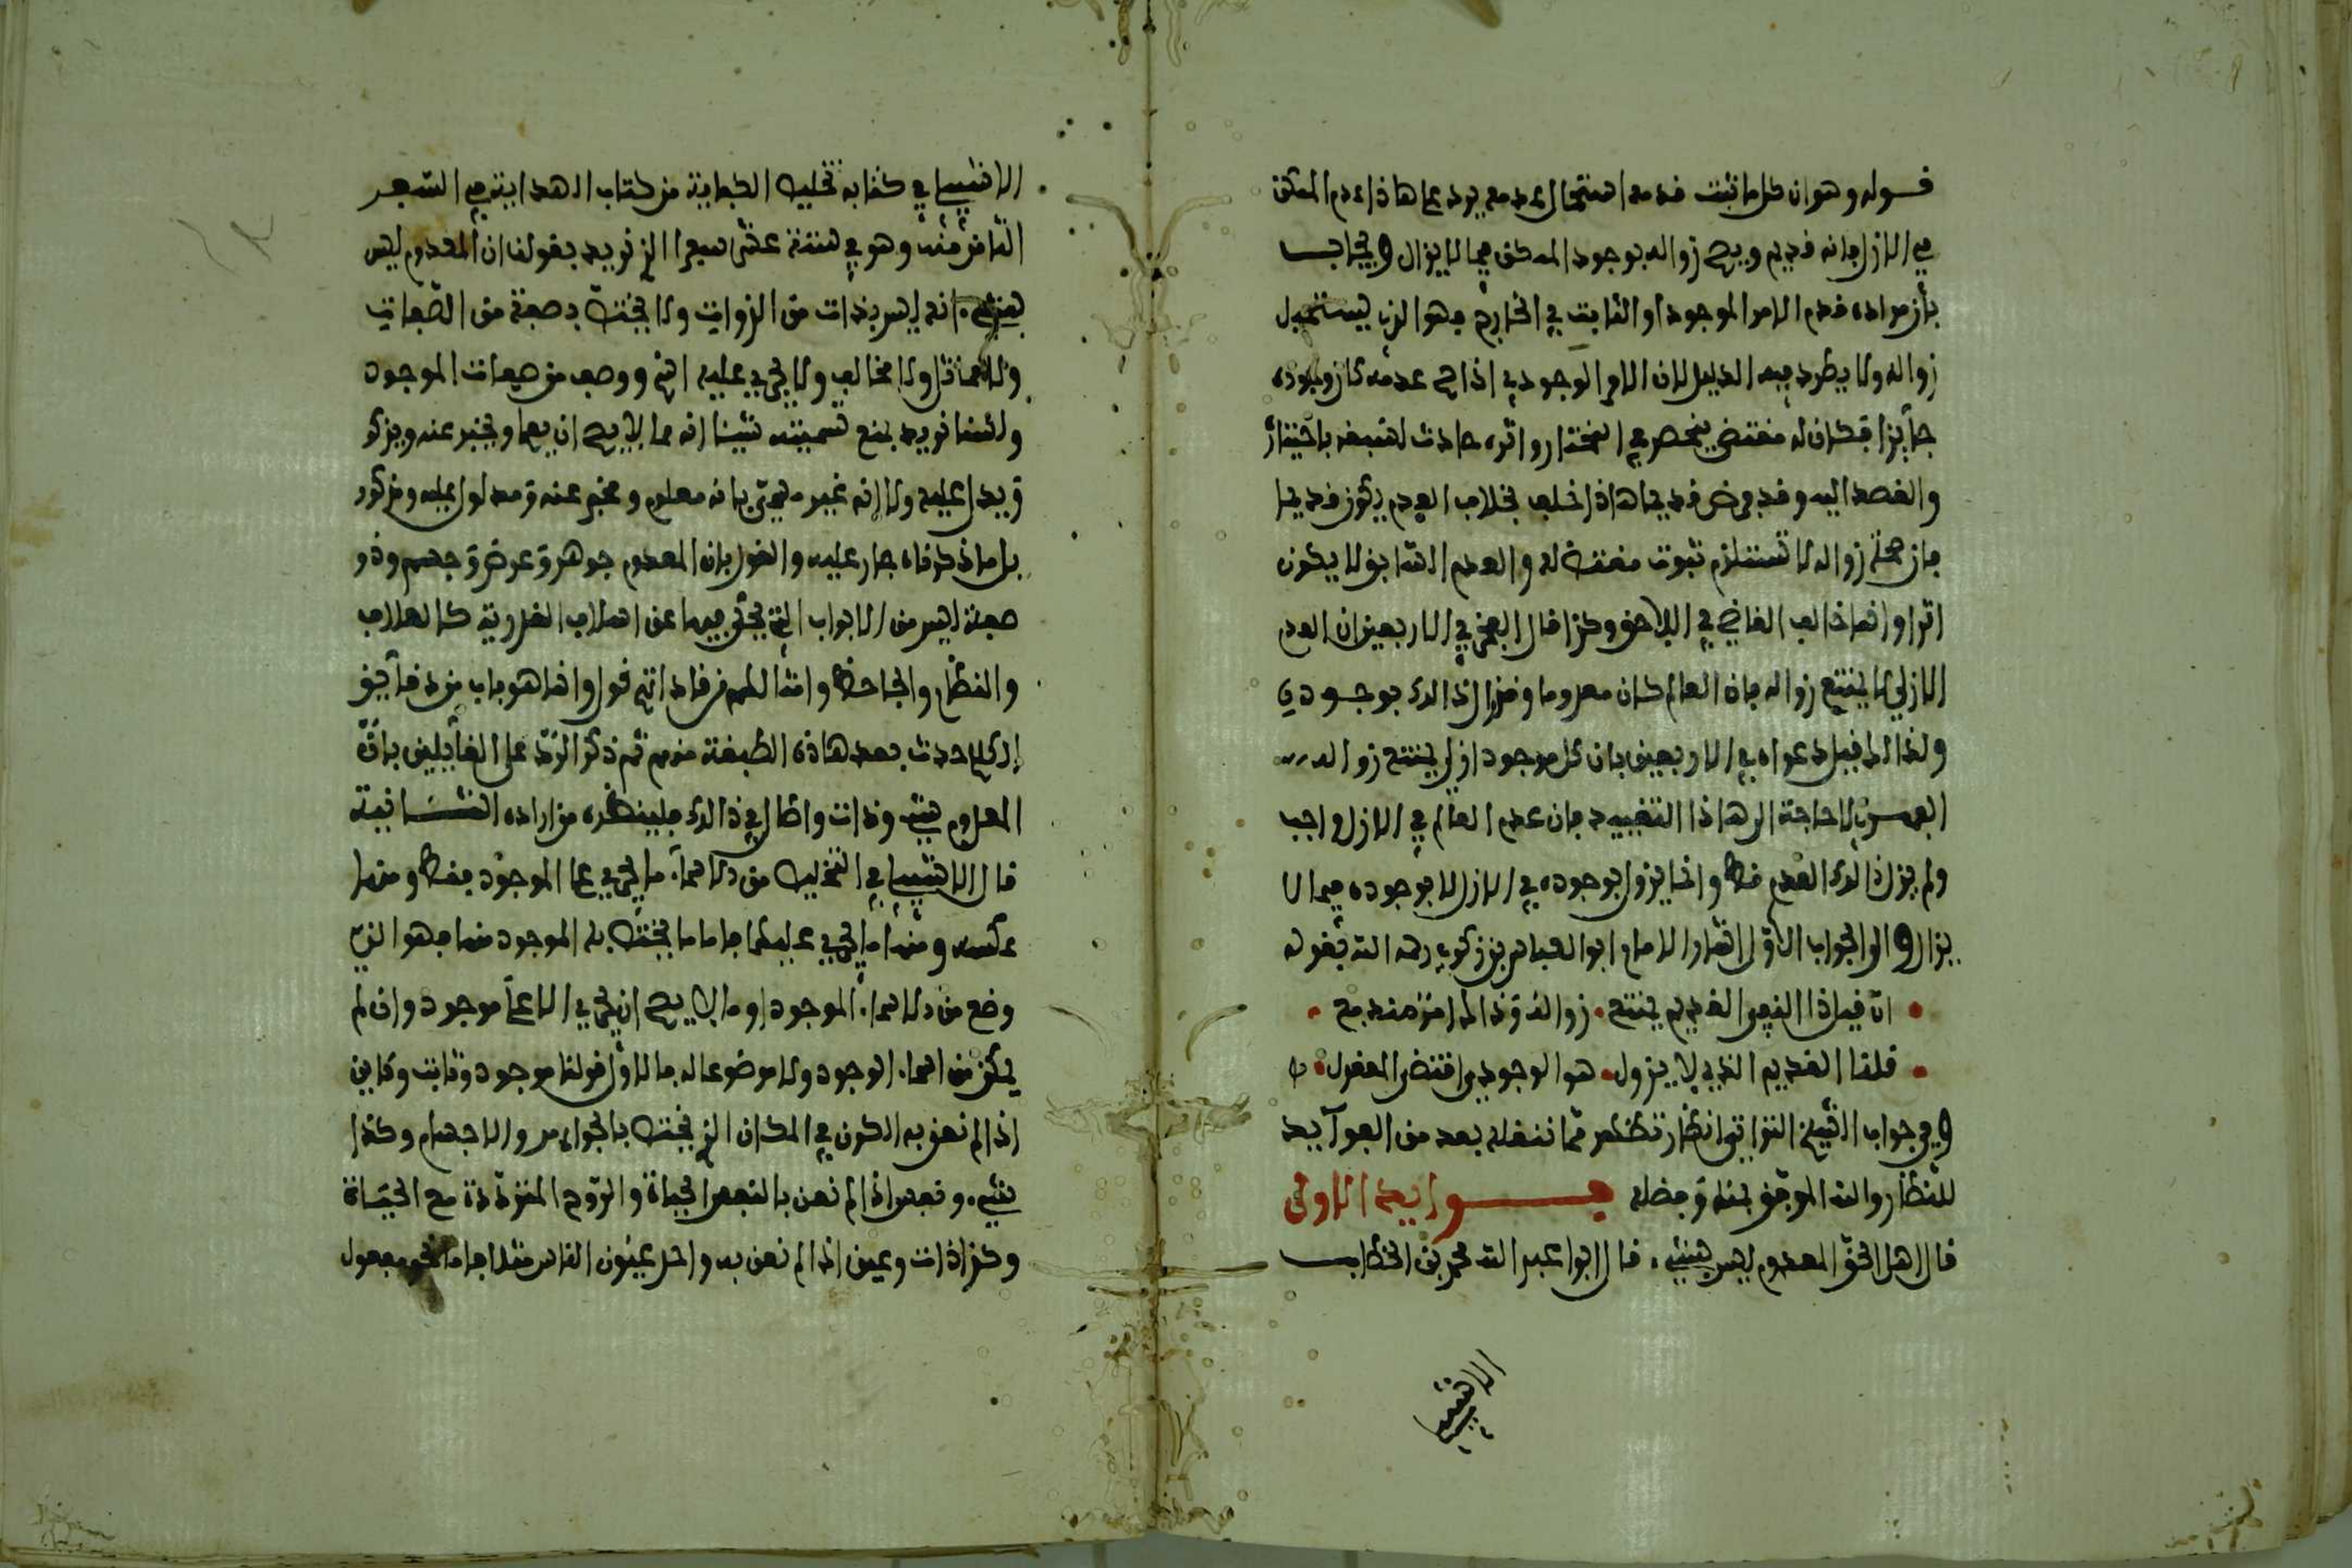 قوله وهو ان كل ما ثبت قدمه استحال عدمه يرد على هاذا عدم الممكن
في الازل فانه قديم ويصح زواله بوجود الممكن فيما لا يزال ويجاب
بأن مراده قدم الامر الموجود او الثابت في الخارج فهو الذي يستحيل
زواله ولا يطرد فيه الدليل لان الامر الوجودي اذا صح عدمه كان وجوده
جآيزا فكان له مقتضى ينحصر في المختار واثره حادث لسبقه باختيار
والقصد اليه وقد فرض قديما هاذا خلف بخلاف العدم يكون قديما
فان صحة زواله لا تستلزم ثبوت مقتض له والعدم السابق لا يكون
اثرا وانما خالف القاضي في اللاحق وكذا قال الفخر في الاربعين ان العدم
الازلي لا يمتنع زواله فان العالم كان معدوما وقد زال ذالك بوجودي
ولذالك قيل دعواه في الاربعين بان كل موجود ازلي يمتنع زواله
الفهري لا حاجة الى هاذا التقييد فان عدم العالم في الازل واجب
ولم يزل ذالك العدم قط وانما يزول بوجوده في الازل لا بوجوده فيما لا
يزال والى الجواب الاول اشار الامام ابو العباس بن زكري رحمه الله بقوله
ان قيل ذا النفي القديم يمتنع . زواله وذا لما مر منه مع
قلنا القديم الذي لا يزول . هو الوجودي اقتضى المعقول
وفي جواب الشيخ التواتي انظار تظهر مما ننقله بعد من الفوآيد
للنظار والله الموفق بمنه وفضله فــوايد الاولى
قال اهل الحق المعدوم ليس بشيء . قال ابو عبد الله محمد بن الخطاب
الاشبيلي
الاشبيلي في كتابه تخليص الكفاية من كتاب الهداية في السفر
الثامن منه وهو في ستة عشر سفرا الذي نريد بقولنا ان المعدوم ليس
بشيء انه ليس بذات من الذوات ولا يختص بصفة من الصفات
ولا مماثل ولا مخالف ولا يجري عليه اسم ووصف من صفات الموجود
ولسنا نريد بمنع تسميته شيئا انه مما لا يصح ان يعلم ويخبر عنه ويذكر
ويدل عليه ولا انه غير مسمى بانه معلوم ومخبر عنه ومدلول عليه ومذكور
بل ما ذكرناه جار عليه والقول بان المعدوم جوهر وعرض وجسم وذو
صفة ليس من الابواب التي يحكى فيها عن اسلاف القدرية كالعلاف
والنظام والجاحظ وامثالهم من قادتهم قول وانما هو باب من دقآيق
الكلام حدث بعد هاذه الطبقة منهم ثم ذكر الرد على القآيلين بان
المعدوم شيء وذات واطال في ذالك فلينظره من اراده الثانية
قال الاشبيلي في التخليص من الاسمآء ما يجري على الموجود فقط ومنها
عكسه ومنها ما يجري عليهما فاما ما يختص به الموجود منها فهو الذي
وضع من الاسمآء الموجود او ما لا يصح ان يجري الا على موجود وان لم
يكن من اسماء الوجود ولا موضوعا له فالاول قولنا موجود وثابت وكاين
اذا لم نعن به الكون في المكان الذي يختص بالجواهر والاجسام وكذا
شيء ونفس اذا لم نعن بالنفس الحياة والروح المترددة مع الحياة
وكذا ذات وعين اذا لم نعن به واحد عيون الناس مثلا فاما نحو مفعول